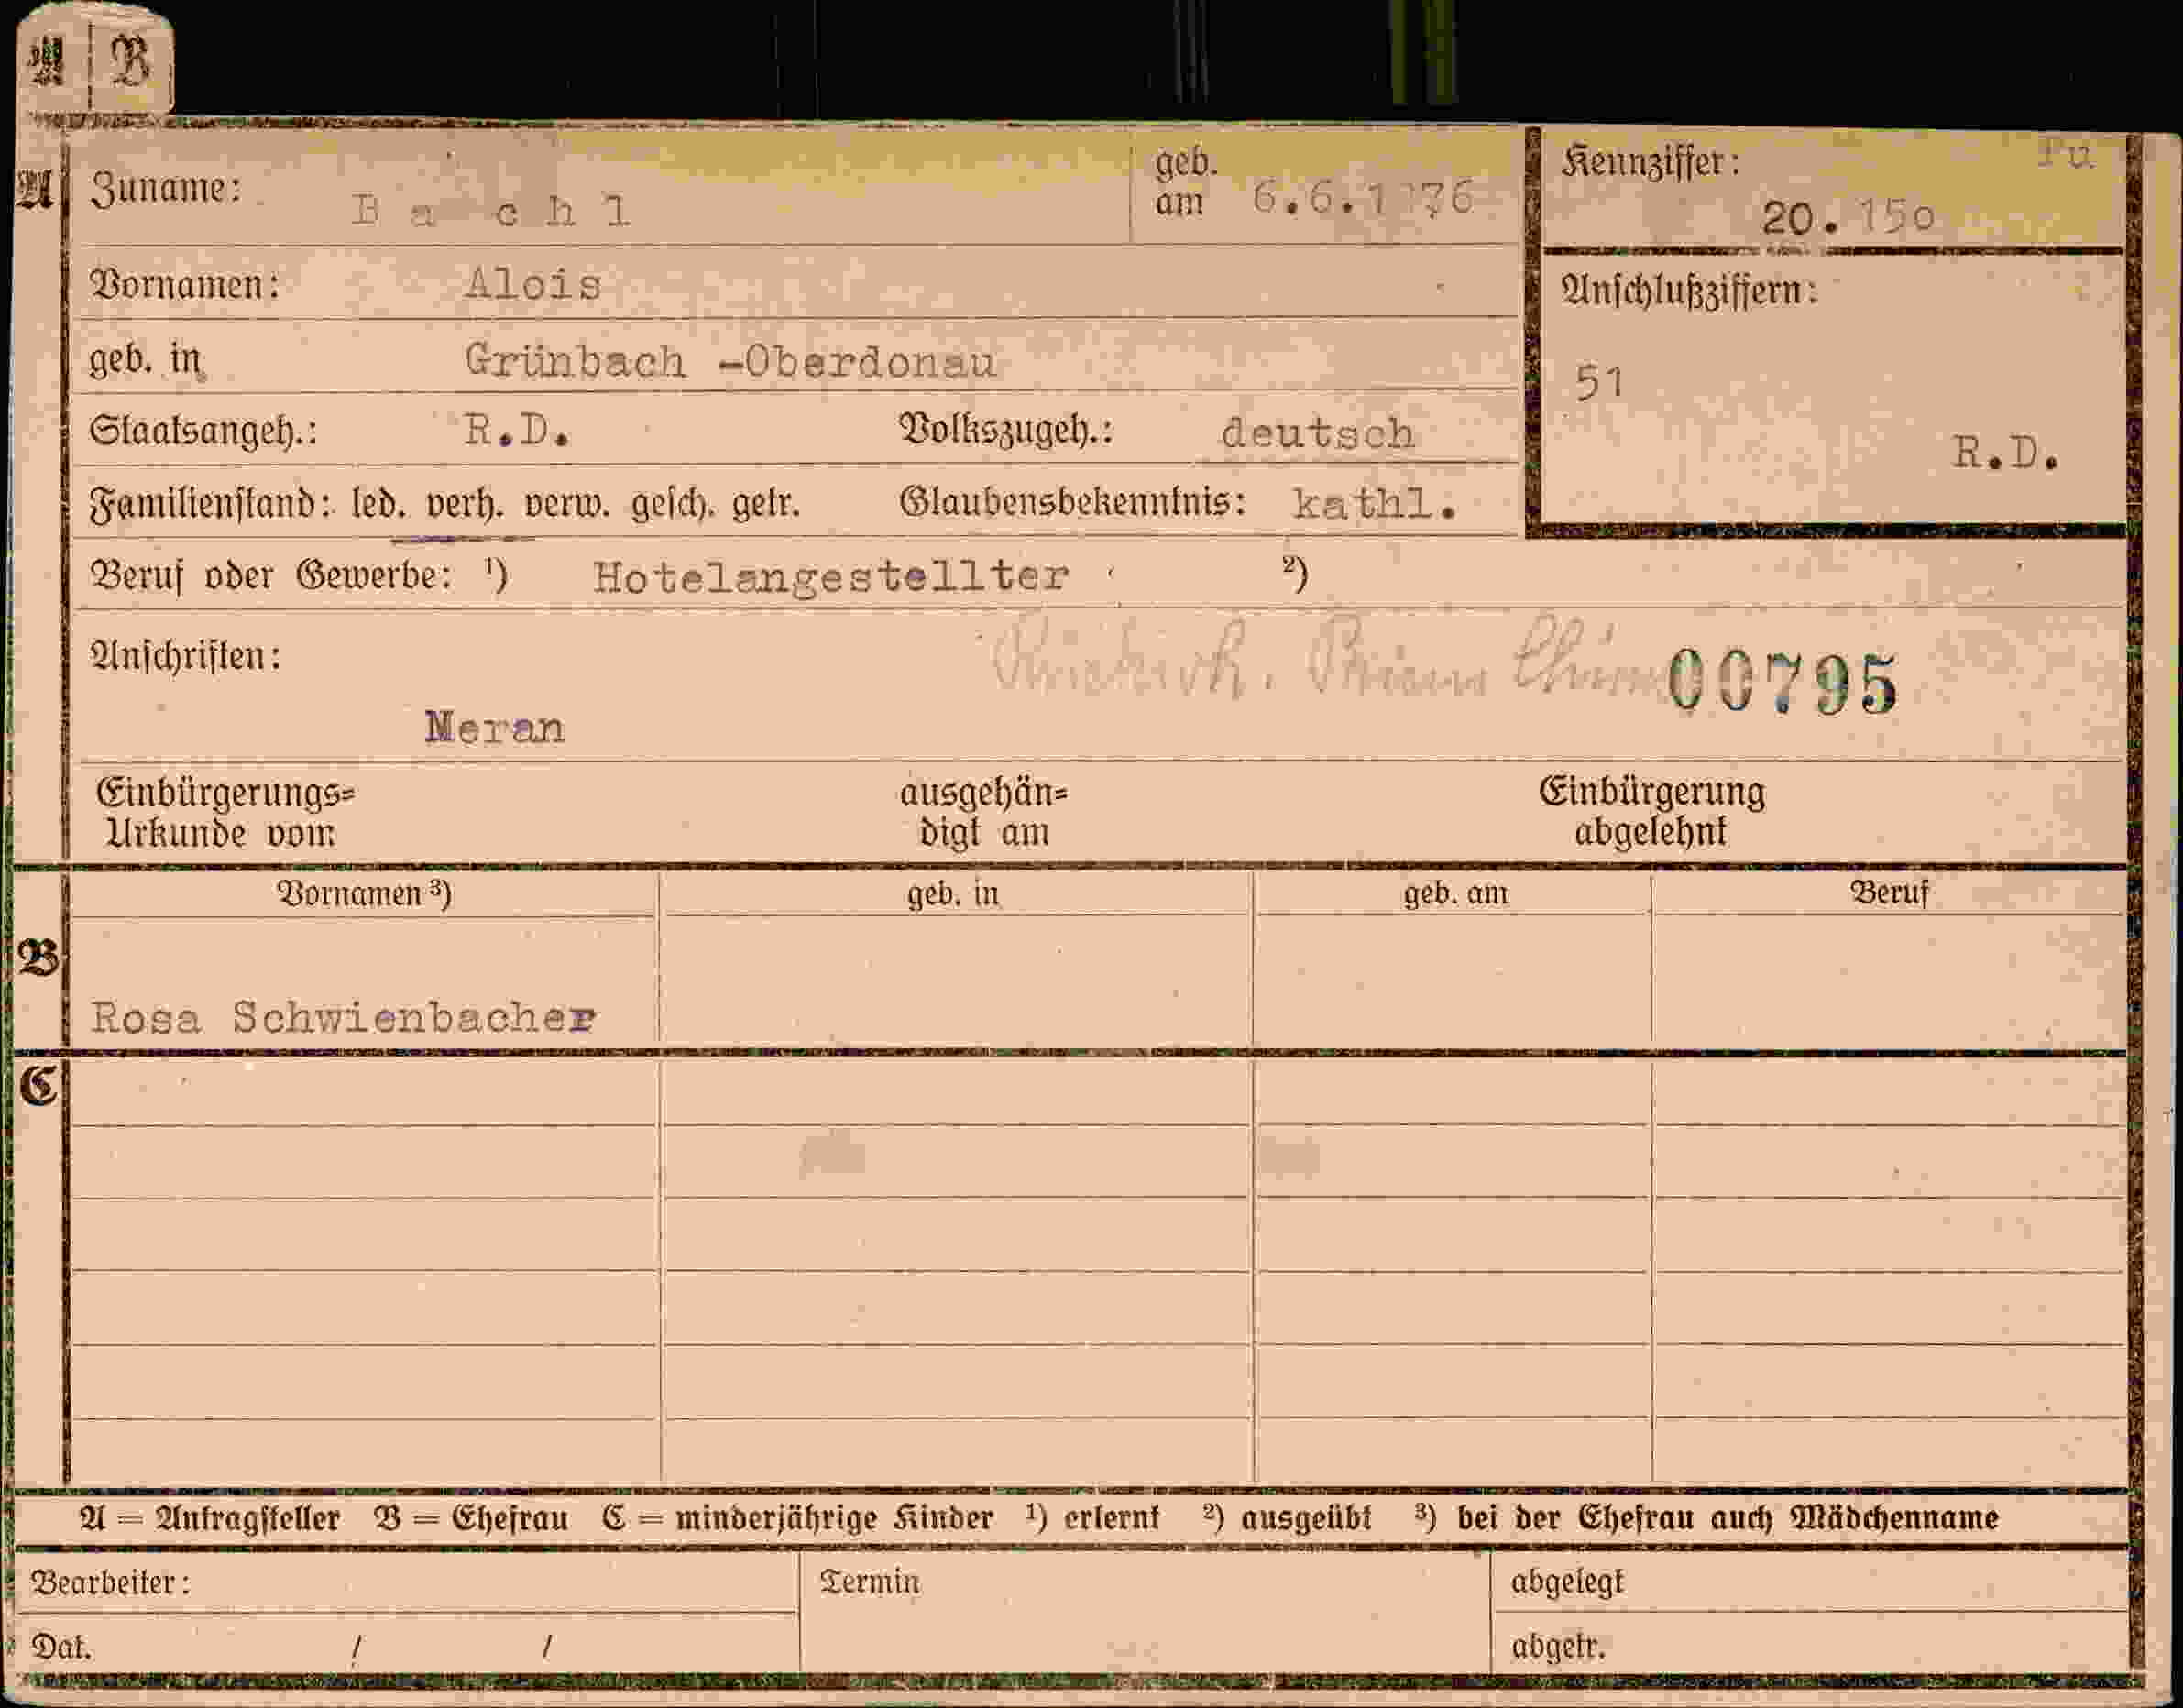 A B
A Zuname: Bachl geb. am 6.6.1876 Kennziffer: 20.150
Vornamen: Alois Anschlußziffern:
geb. in Grünbach -Oberdonau 51
Staatsangeh.: R.D. Volkszugeh.: deutsch R.D.
Familienstand: led. verh. verw. gesch. getr. Glaubensbekenntnis: kathl.
Beruf oder Gewerbe: ¹) Hotelangestellter ²)
Anschriften: 00795
Meran
Einbürgerungs= ausgehän= Einbürgerung
Urkunde vom digt am abgelehnt
Vornamen ³) geb. in geb. am Beruf
B
Rosa Schwienbacher
C
A = Antragsteller B = Ehefrau C = minderjährige Kinder ¹) erlernt ²) ausgeübt ³) bei der Ehefrau auch Mädchenname
Bearbeiter: Termin abgelegt
Dat. / / abgetr.